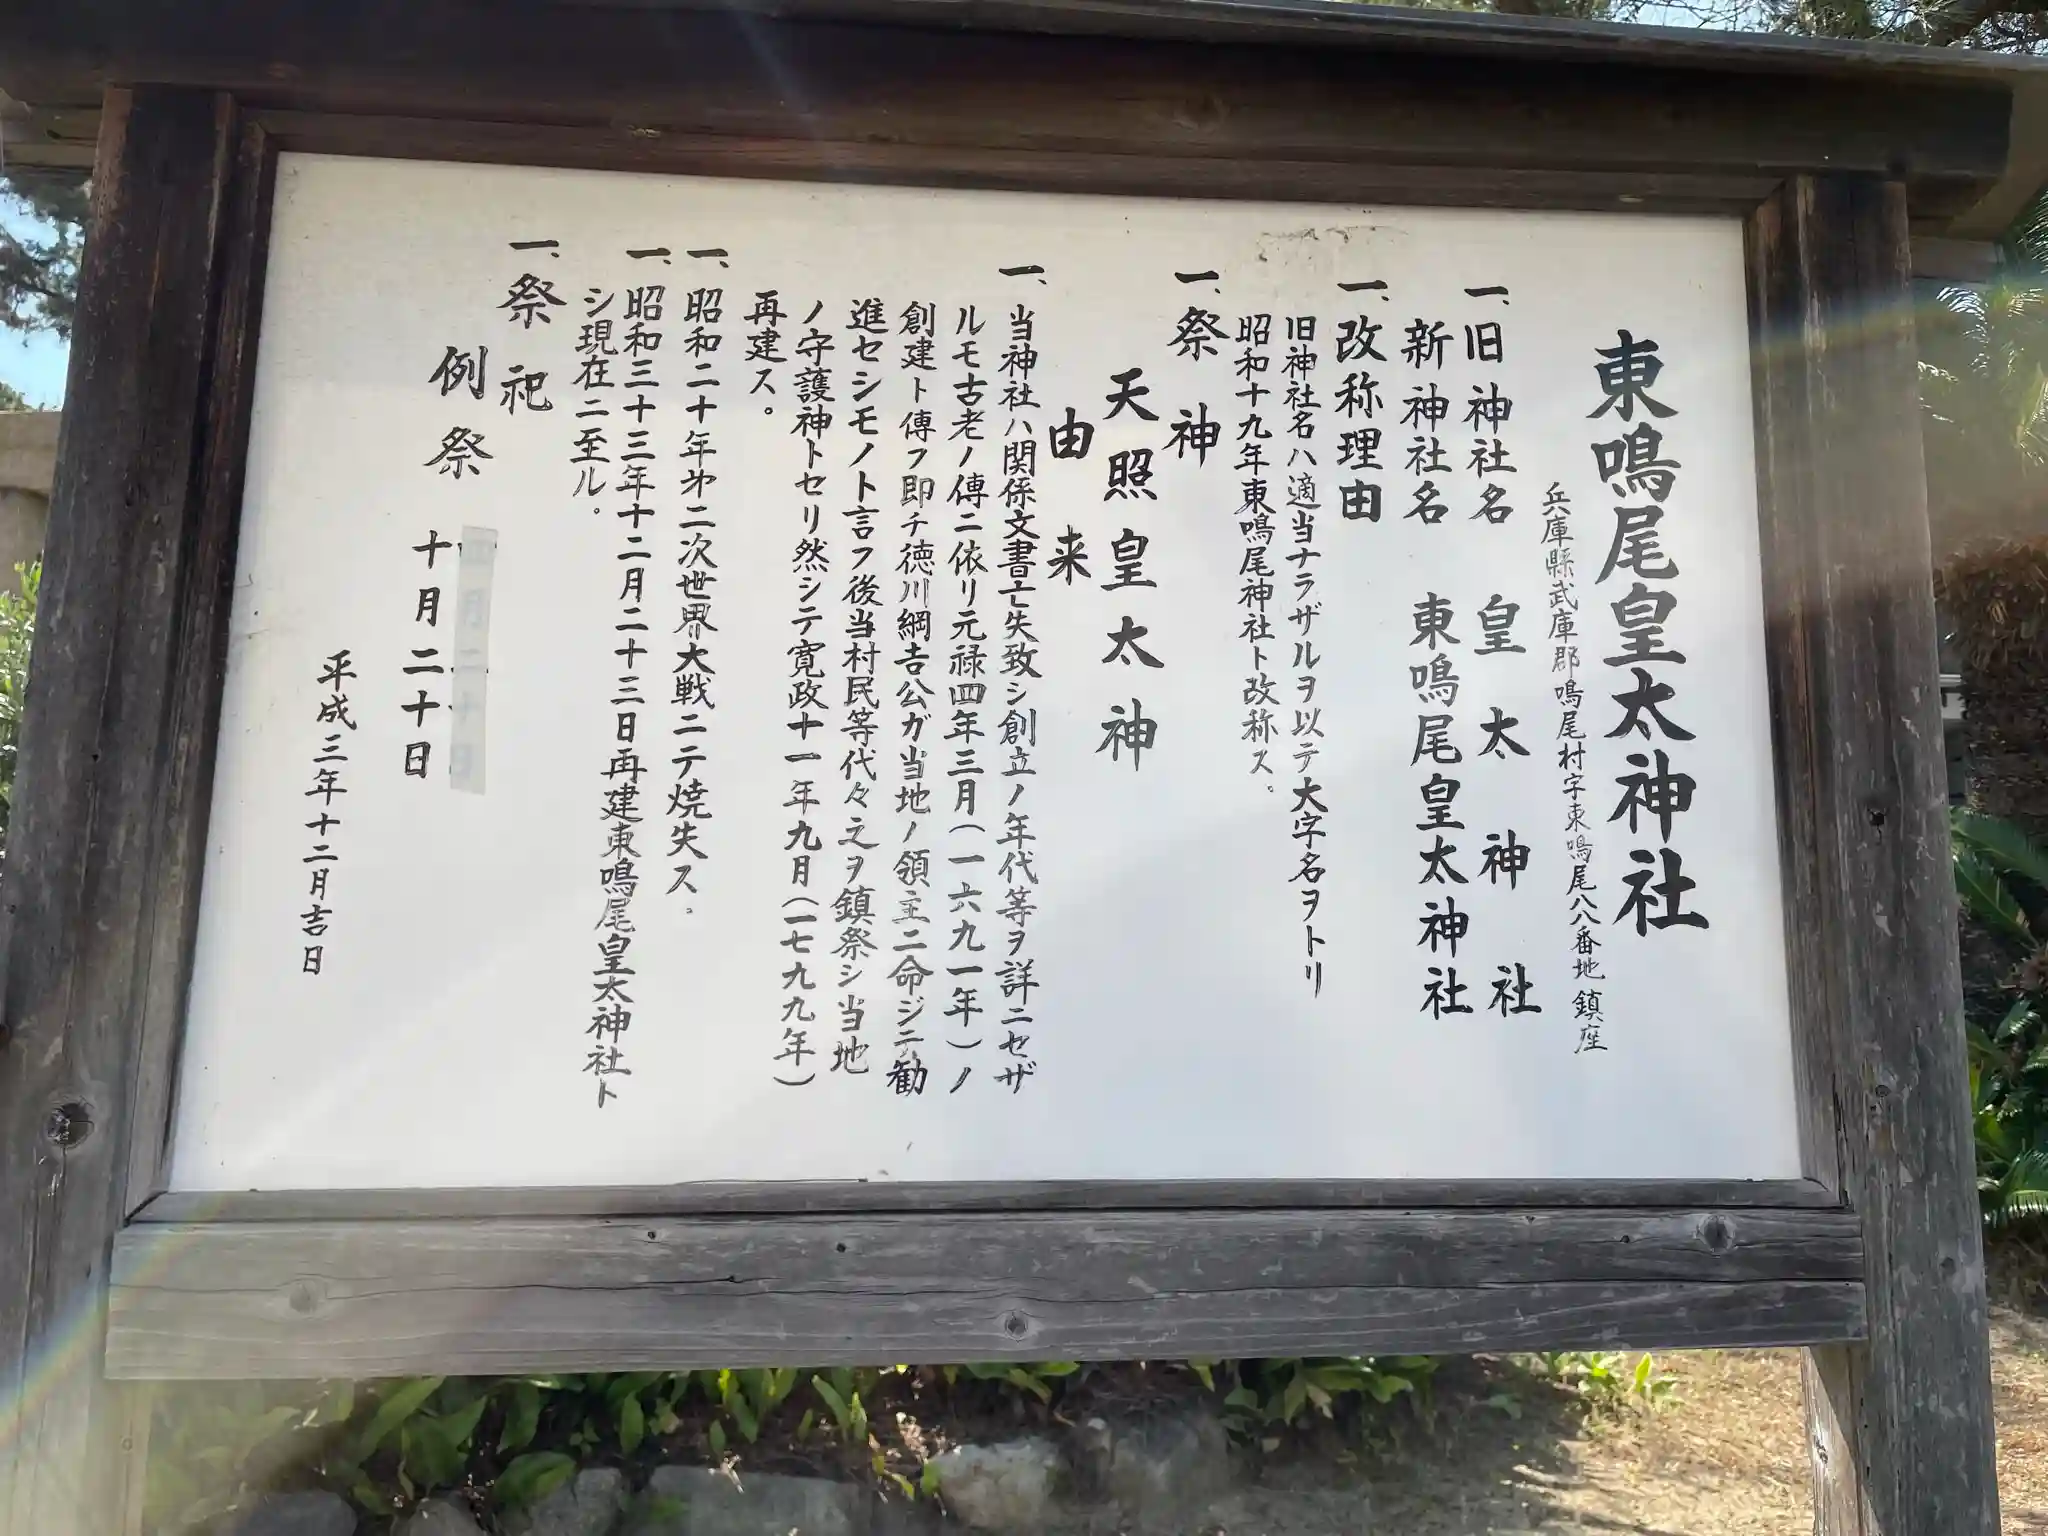 東鳴尾皇太神社
兵庫縣武庫郡鳴尾村字東鳴尾八八番地 鎮座
一、旧神社名 皇太神社
新神社名 東鳴尾皇太神社
一、改称理由
旧神社名ハ適当ナラザルヲ以テ大字名ヲトリ
昭和十九年東鳴尾神社ト改称ス。
一、祭神
天照皇太神
由来
一、当神社ハ関係文書亡失致シ創立ノ年代等ヲ詳ニセザ
ルモ古老ノ傳ニ依リ元禄四年三月(一六九一年)ノ
創建ト傳フ即チ徳川綱吉公ガ当地ノ領主ニ命ジニ勧
進セシモノト言フ後当村民等代々之ヲ鎮祭シ当地
ノ守護神トセリ然シテ寛政十一年九月(一七九九年)
再建ス。
一、昭和二十年㐧二次世界大戦ニテ焼失ス。
一、昭和三十三年十二月二十三日再建東鳴尾皇太神社ト
シ現在ニ至ル。
一、祭祀
四月二十日
例祭 十月二十日
平成三年十二月吉日